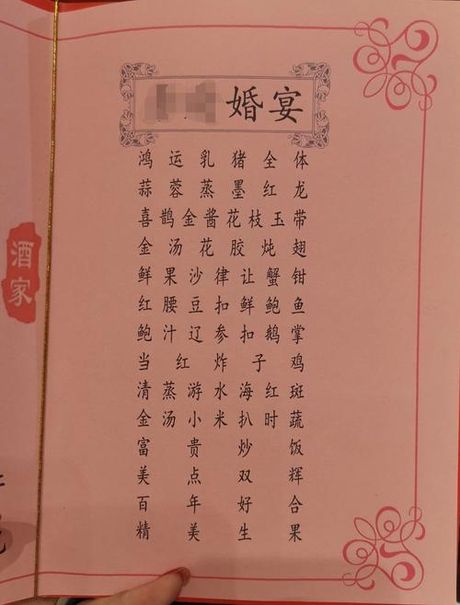 婚宴
鸿运乳猪全体
蒜蓉蒸墨红龙
喜鹊金酱花枝玉带
金汤花胶炖翅
鲜果沙律让蟹钳
红腰豆扣鲜鲍鱼
鲍汁辽参扣鹅掌
当红炸子鸡
清蒸游水海红斑
金汤小米扒时蔬
富贵炒饭
美点双辉
百年好合
精美生果
酒家